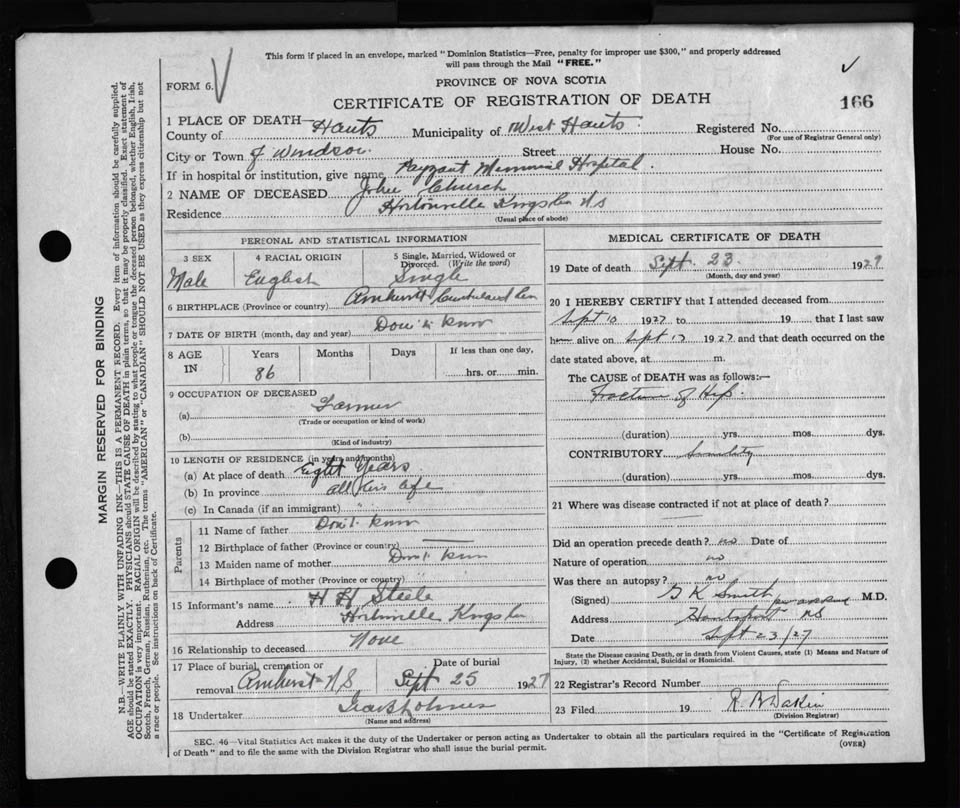 This form if placed in an envelope, marked "Dominion Statistics—Free, penalty for improper use $300," and properly addressed
will pass through the Mail "FREE."
FORM 6.
PROVINCE OF NOVA SCOTIA
CERTIFICATE OF REGISTRATION OF DEATH
166
1 PLACE OF DEATH—
County of Hants Municipality of West Hants Registered No.
(For use of Registrar General only)
City or Town of Windsor Street House No.
If in hospital or institution, give name Payzant Memorial Hospital
2 NAME OF DECEASED John Church
Residence Hortonville Kings Co N S
(Usual place of abode)
PERSONAL AND STATISTICAL INFORMATION
3 SEX 4 RACIAL ORIGIN 5 Single, Married, Widowed or Divorced. (Write the word)
Male English Single
6 BIRTHPLACE (Province or country) Amherst Cumberland Co
7 DATE OF BIRTH (month, day and year) Don't know
8 AGE IN Years Months Days If less than one day,
86 hrs. or min.
9 OCCUPATION OF DECEASED
(a) Farmer
(Trade or occupation or kind of work)
(b)
(Kind of industry)
10 LENGTH OF RESIDENCE (in years and months)
(a) At place of death Eight Years
(b) In province all his life
(c) In Canada (if an immigrant) "
Parents
11 Name of father Don't know
12 Birthplace of father (Province or country)
13 Maiden name of mother Don't know
14 Birthplace of mother (Province or country) "
15 Informant's name H H Steele
Address Hortonville Kings Co
16 Relationship to deceased None
17 Place of burial, cremation or removal Amherst N S Date of burial Sept 25 1927
18 Undertaker
(Name and address)
MEDICAL CERTIFICATE OF DEATH
19 Date of death Sept. 23 1927
(Month, day and year)
20 I HEREBY CERTIFY that I attended deceased from
Sept 10 1927 to 19 that I last saw
him alive on Sept 17 1927 and that death occurred on the
date stated above, at m.
The CAUSE of DEATH was as follows:—
Fracture of Hip.
(duration) yrs. mos. dys.
CONTRIBUTORY Senility
(duration) yrs. mos. dys.
21 Where was disease contracted if not at place of death?
Did an operation precede death? no Date of
Nature of operation no
Was there an autopsy? no
(Signed) G K Smith M.D.
Address Hantsport N S
Date Sept 23/27
State the Disease causing Death, or in death from Violent Causes, state (1) Means and Nature of
Injury, (2) whether Accidental, Suicidal or Homicidal.
22 Registrar's Record Number
23 Filed 19
(Division Registrar)
SEC. 46—Vital Statistics Act makes it the duty of the Undertaker or person acting as Undertaker to obtain all the particulars required in the "Certificate of Registration
of Death" and to file the same with the Division Registrar who shall issue the burial permit.
(OVER)
MARGIN RESERVED FOR BINDING
N.B.—WRITE PLAINLY WITH UNFADING INK—THIS IS A PERMANENT RECORD. Every item of information should be carefully supplied.
AGE should be stated EXACTLY. PHYSICIANS should STATE CAUSE OF DEATH in plain terms, so that it may be properly classified. Exact statement of
OCCUPATION is very important. RACIAL ORIGIN will be described by stating to what people or tongue the deceased person belonged, whether English, Irish,
Scotch, French, German, Russian, Ruthenian, etc. The terms "AMERICAN" or "CANADIAN" SHOULD NOT BE USED as they express citizenship but not
a race or people. See instructions on back of Certificate.